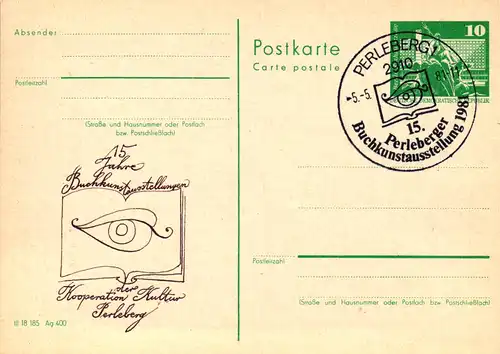 Absender:
Postleitzahl
Straße und Hausnummer oder Postfach
bzw. Postschließfach)
15
Jahre
Buchkunstausstellungen
der
Kooperation Kultur
Perleberg
III 18 185 Ag 400
Postkarte
Carte postale
10
DEMOKRATISCHE REPUBLIK
PERLEBERG 1
2910
-5.-5. 81-17
15.
Perleberger
Buchkunstausstellung 1981
Postleitzahl
(Straße und Hausnummer oder Postfach bzw. Postschließfach)